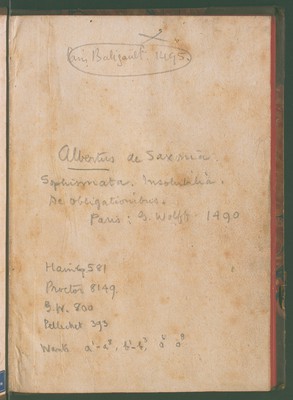 Paris Baligault 1495.
Albertus de Saxonia.
Sophismata. Insolubilia.
De obligationibus.
Paris: G. Wolff. 1490
Hain 581
Proctor 8149
G.W. 800
Pellechet 393
Wants